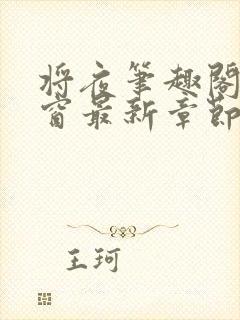 将夜笔趣阁
窗最新章节
王珂